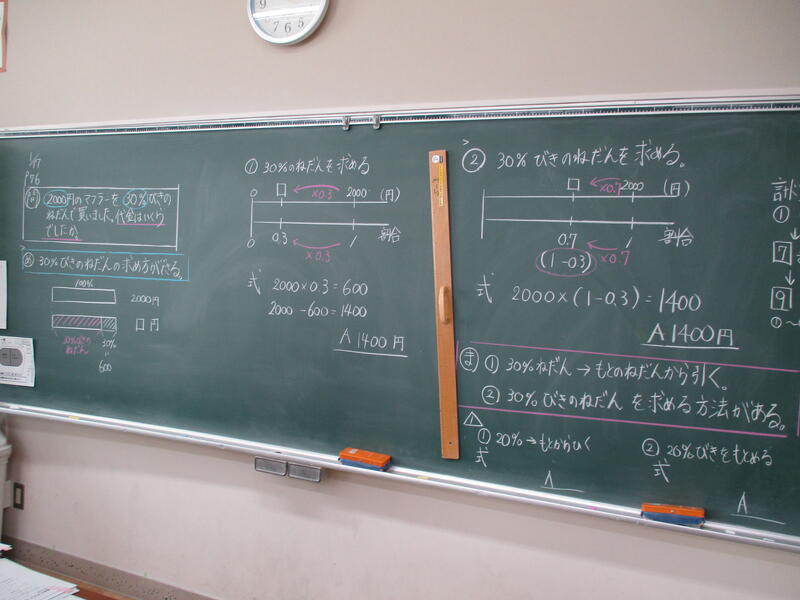 9
8
7
6
5
1/17
P76
問 2000円のマフラーを 30%びきの
ねだんで買いました。代金はいくら
でしたか
め 30%びきのねだんの求め方ができる。
100%
2000円
□ 円
30%びきの
ねだん
30%
"
600
① 30%のねだんを求める
0 □ ×0.3 2000 (円)
0 0.3 ×0.3 1 割合
式 2000×0.3=600
2000-600=1400
A 1400円
② 30% びきのねだんを求める。
□ ×0.7 2000 (円)
0.7 ×0.7 1 割合
(1-0.3)
式 2000×(1-0.3)=1400
A 1400円
ま ① 30%ねだん → もとのねだんから引く。
② 30%びきのねだんを求める方法がある。
① 20%→もとからひく
式
A
② 20%びきをもとめる
式
A
計
①
↓
7
↓
9
①〜